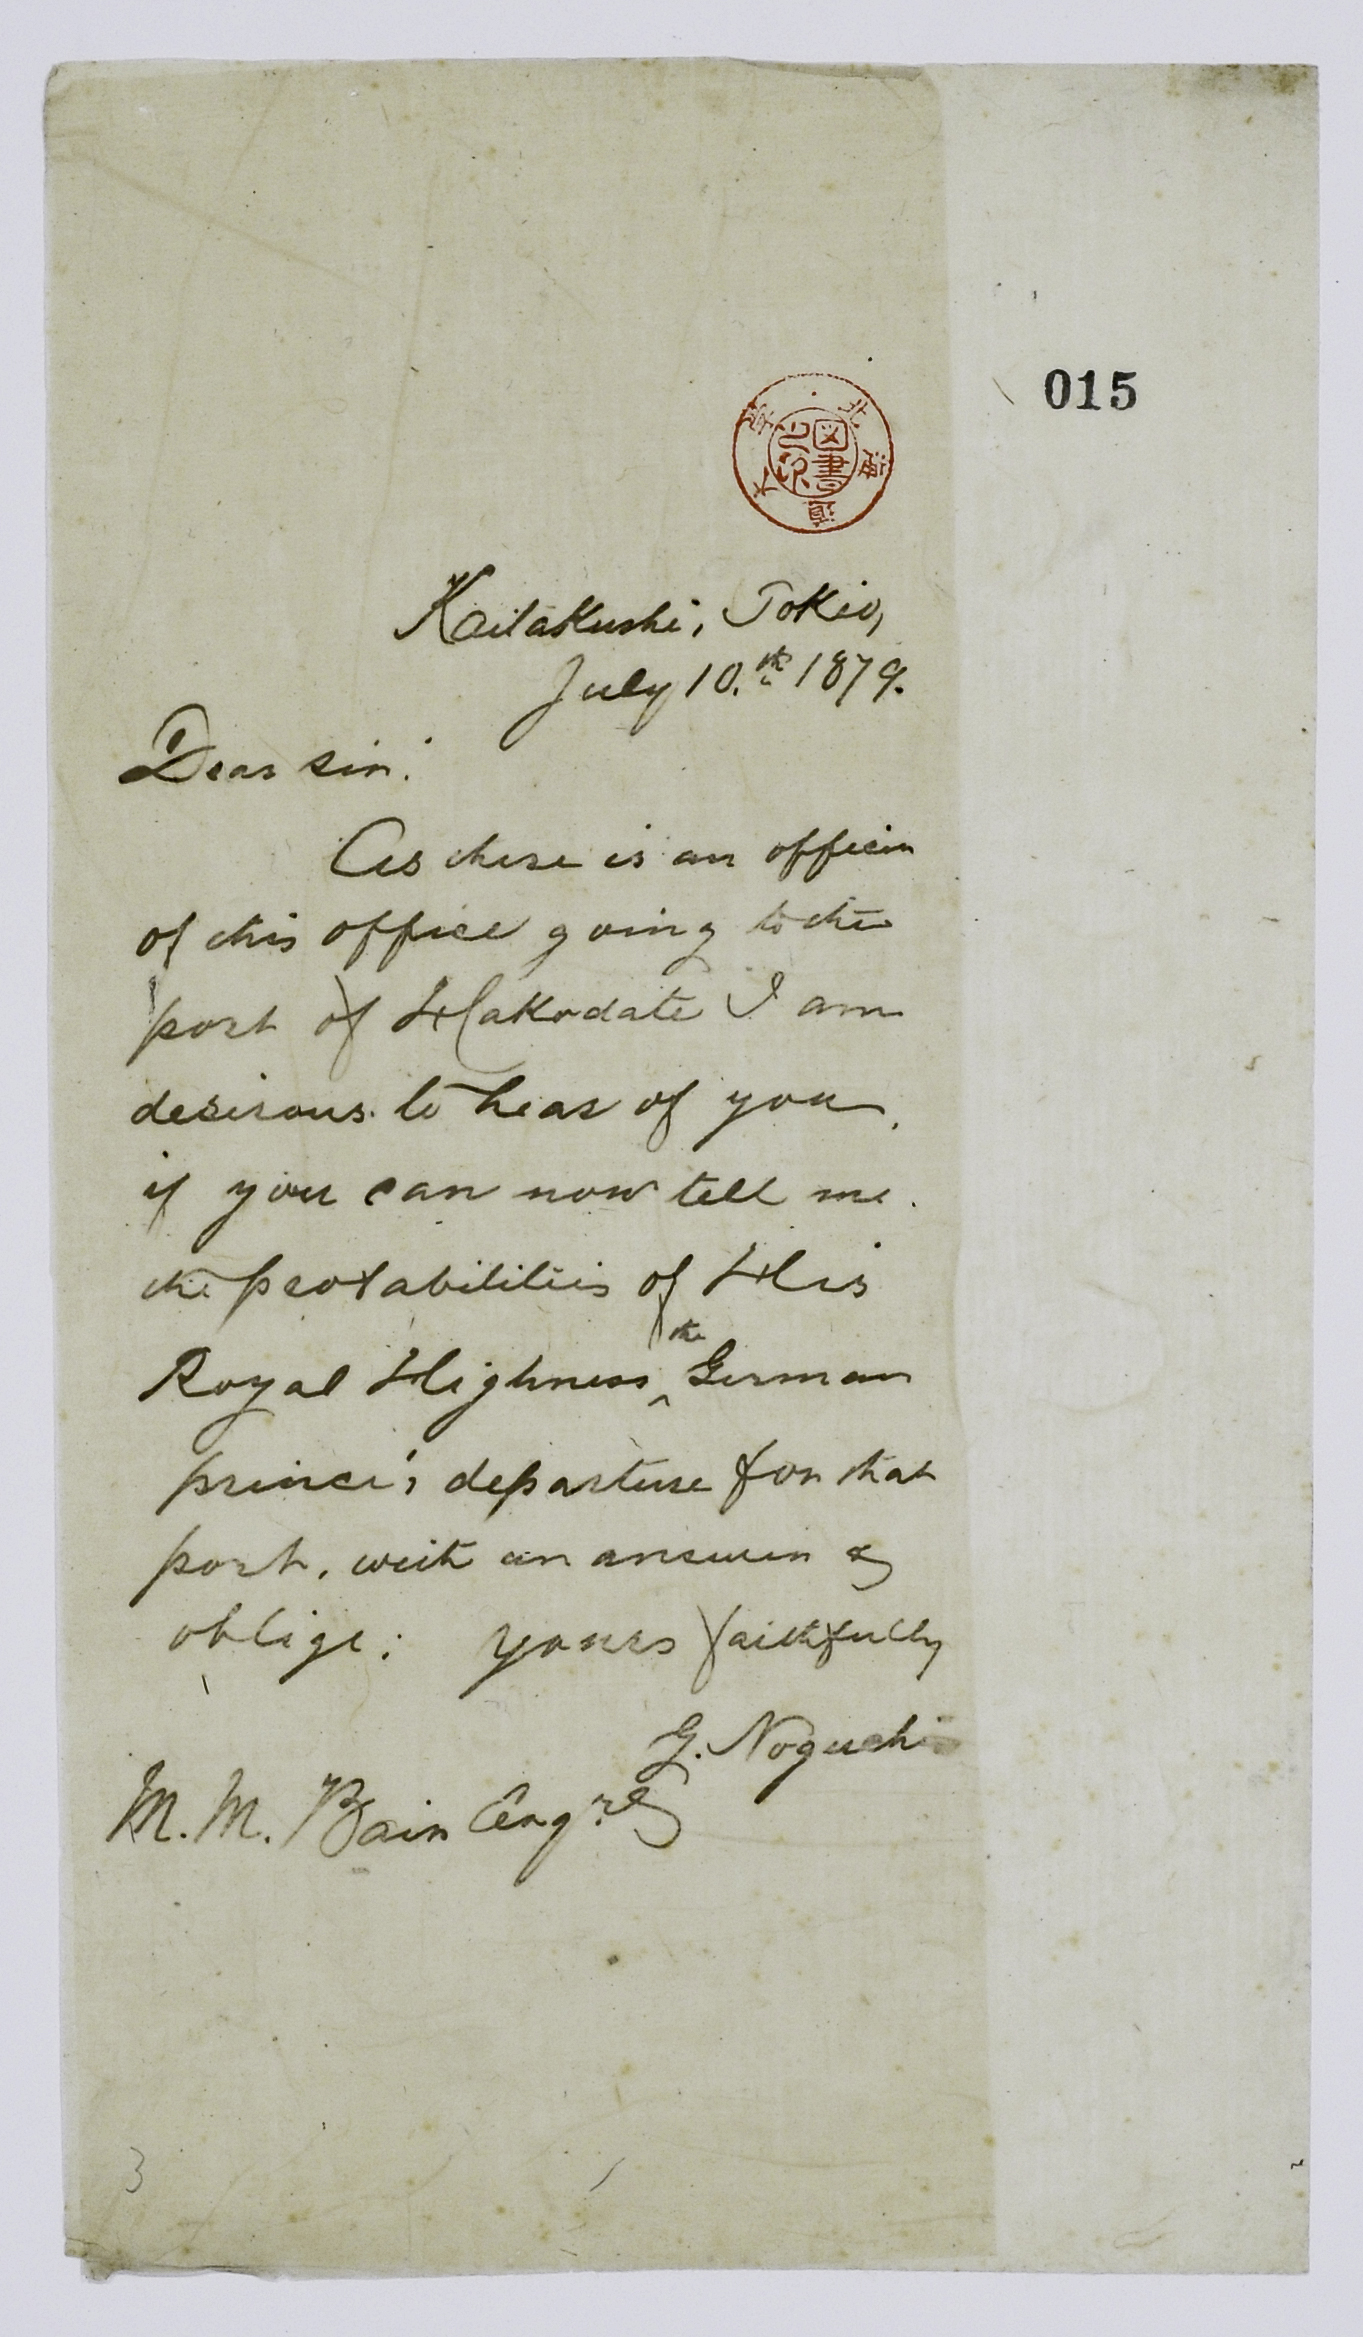 015
北海道大学
図書之印
Kaitakushi, Tokio,
July 10.th 1879.
Dear sir:
As there is an officer
of this office going to the
port of Hakodate I am
desirous to hear of you,
if you can now tell me
the probabilities of His
Royal Highness the German
prince's departure for that
port, with an answer &
oblige: yours faithfully
G. Noguchi
M. M. Bain
3